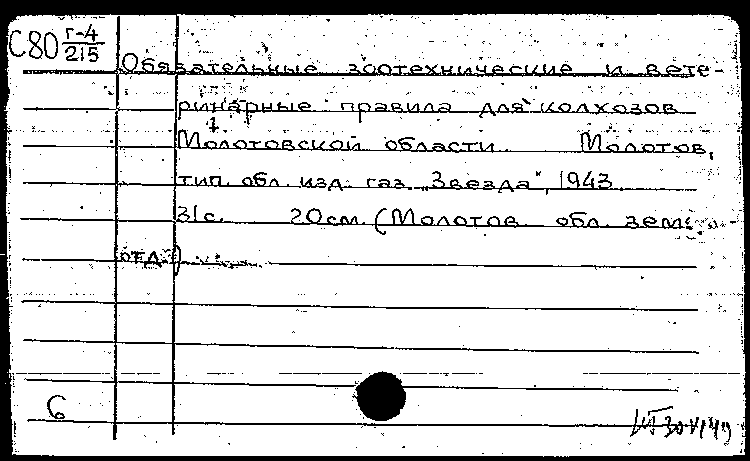 С80 Г-4/215
Обязательные зоотехнические и вете-
ринарные правила для колхозов
Молотовской области. Молотов,
тип. обл. изд. газ. „Звезда", 1943.
31с. 20см. (Молотов. обл. зем.
отд.)
6